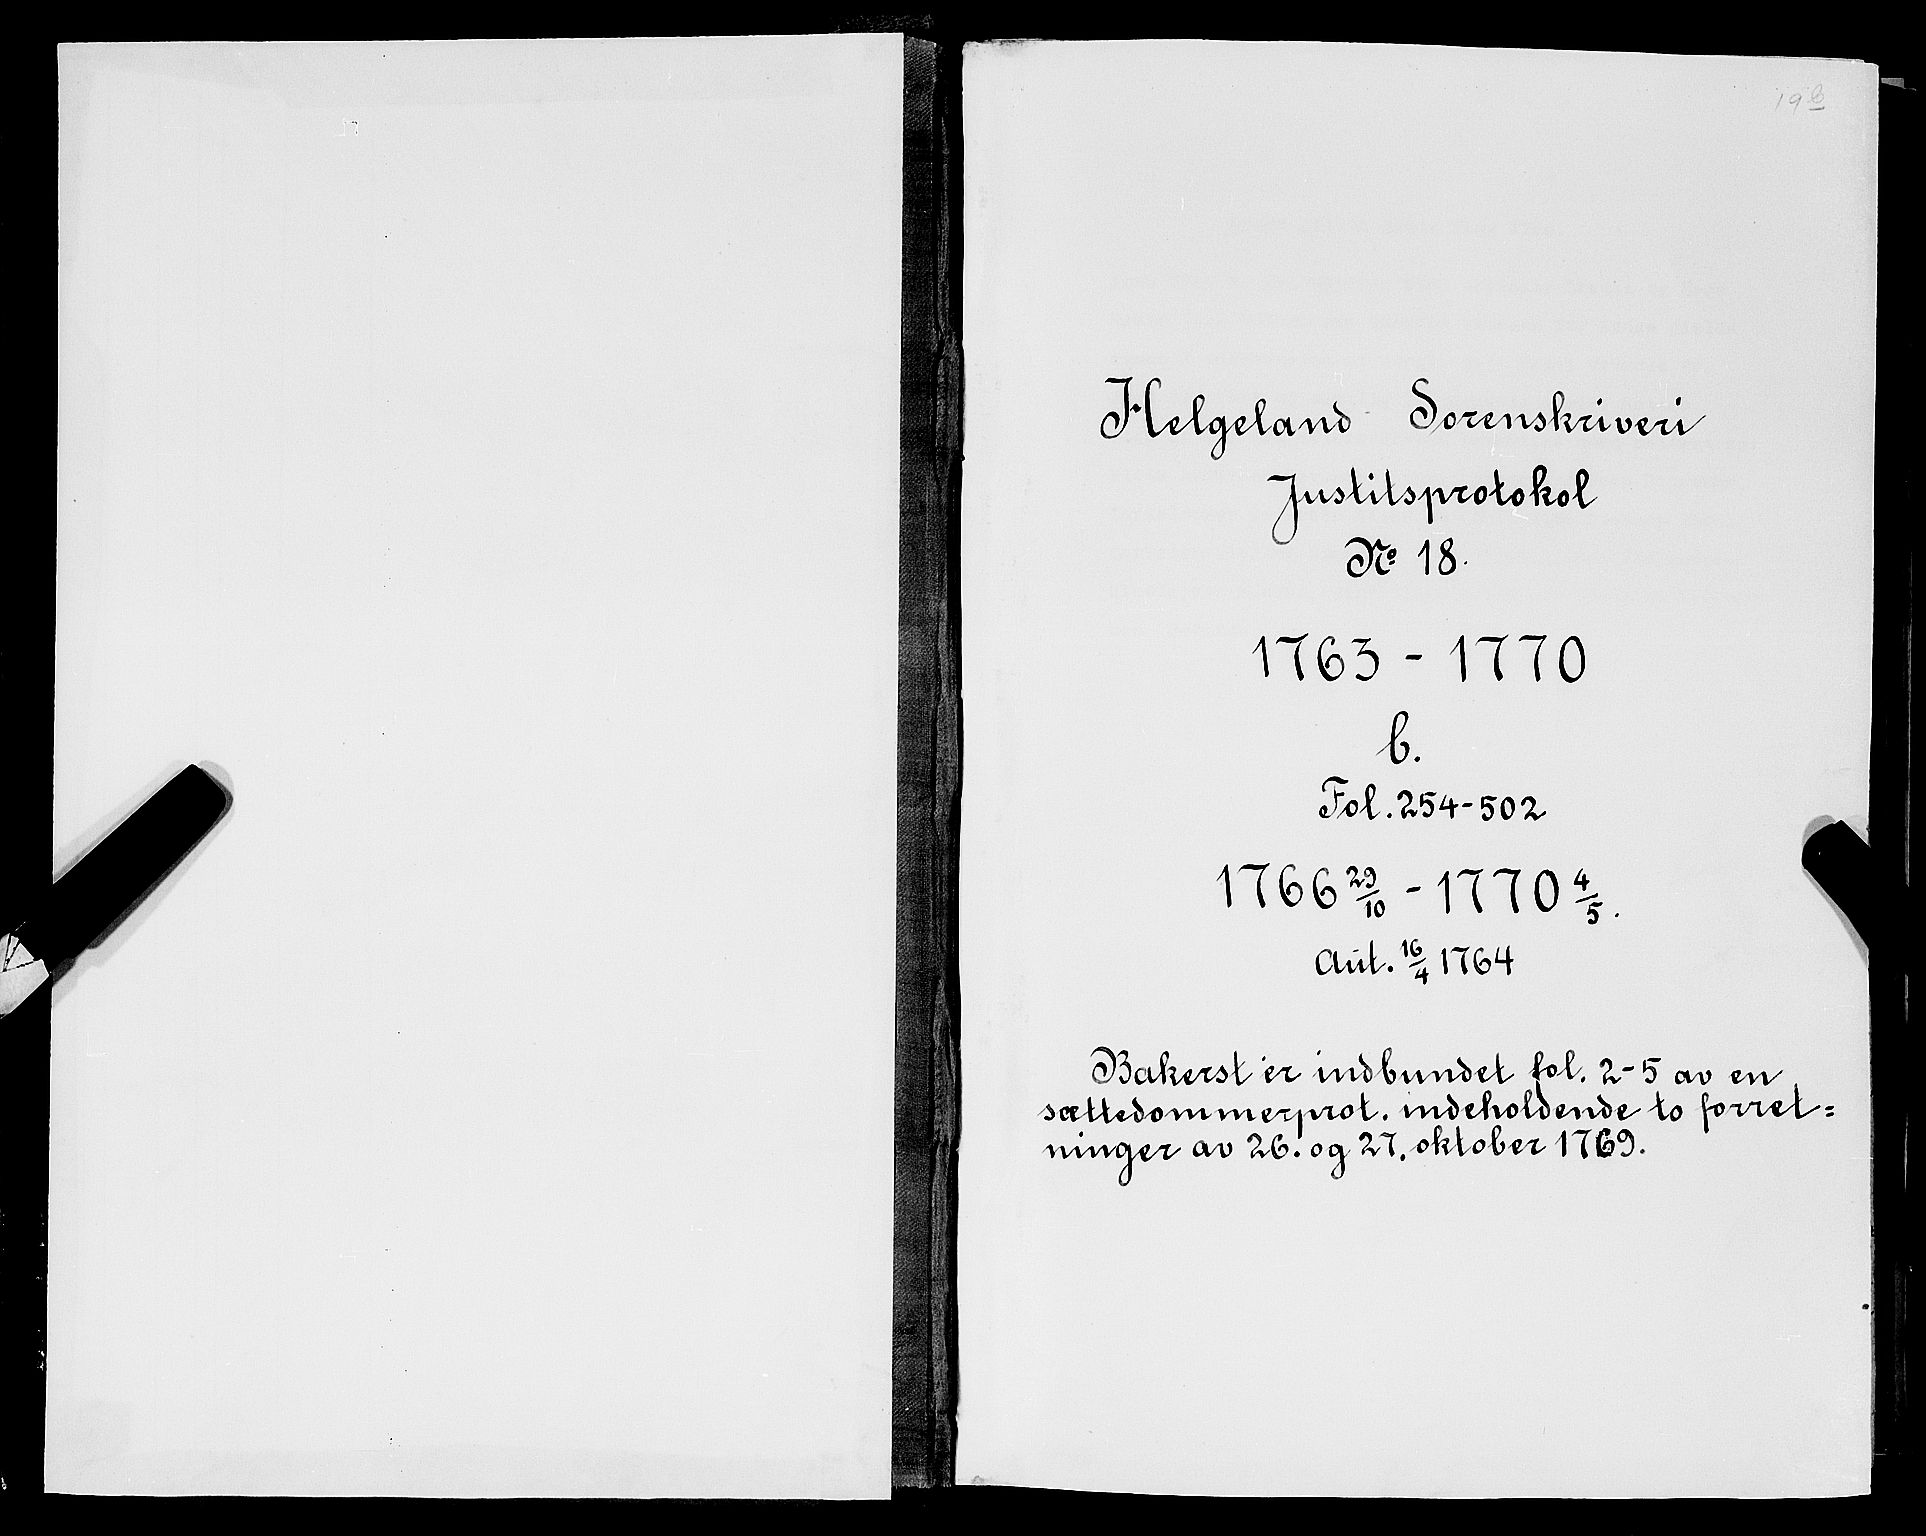 19b
Helgeland Sorenskriveri
Justitsprotokol
No 18.
1763 - 1770
b.
Fol. 254-502
1766 29/10 - 1770 4/5.
Aut. 16/4 1764
Bakerst er indbundet fol. 2-5 av en
sættedommerprot. indeholdende to forret=
ninger av 26. og 27. oktober 1769.